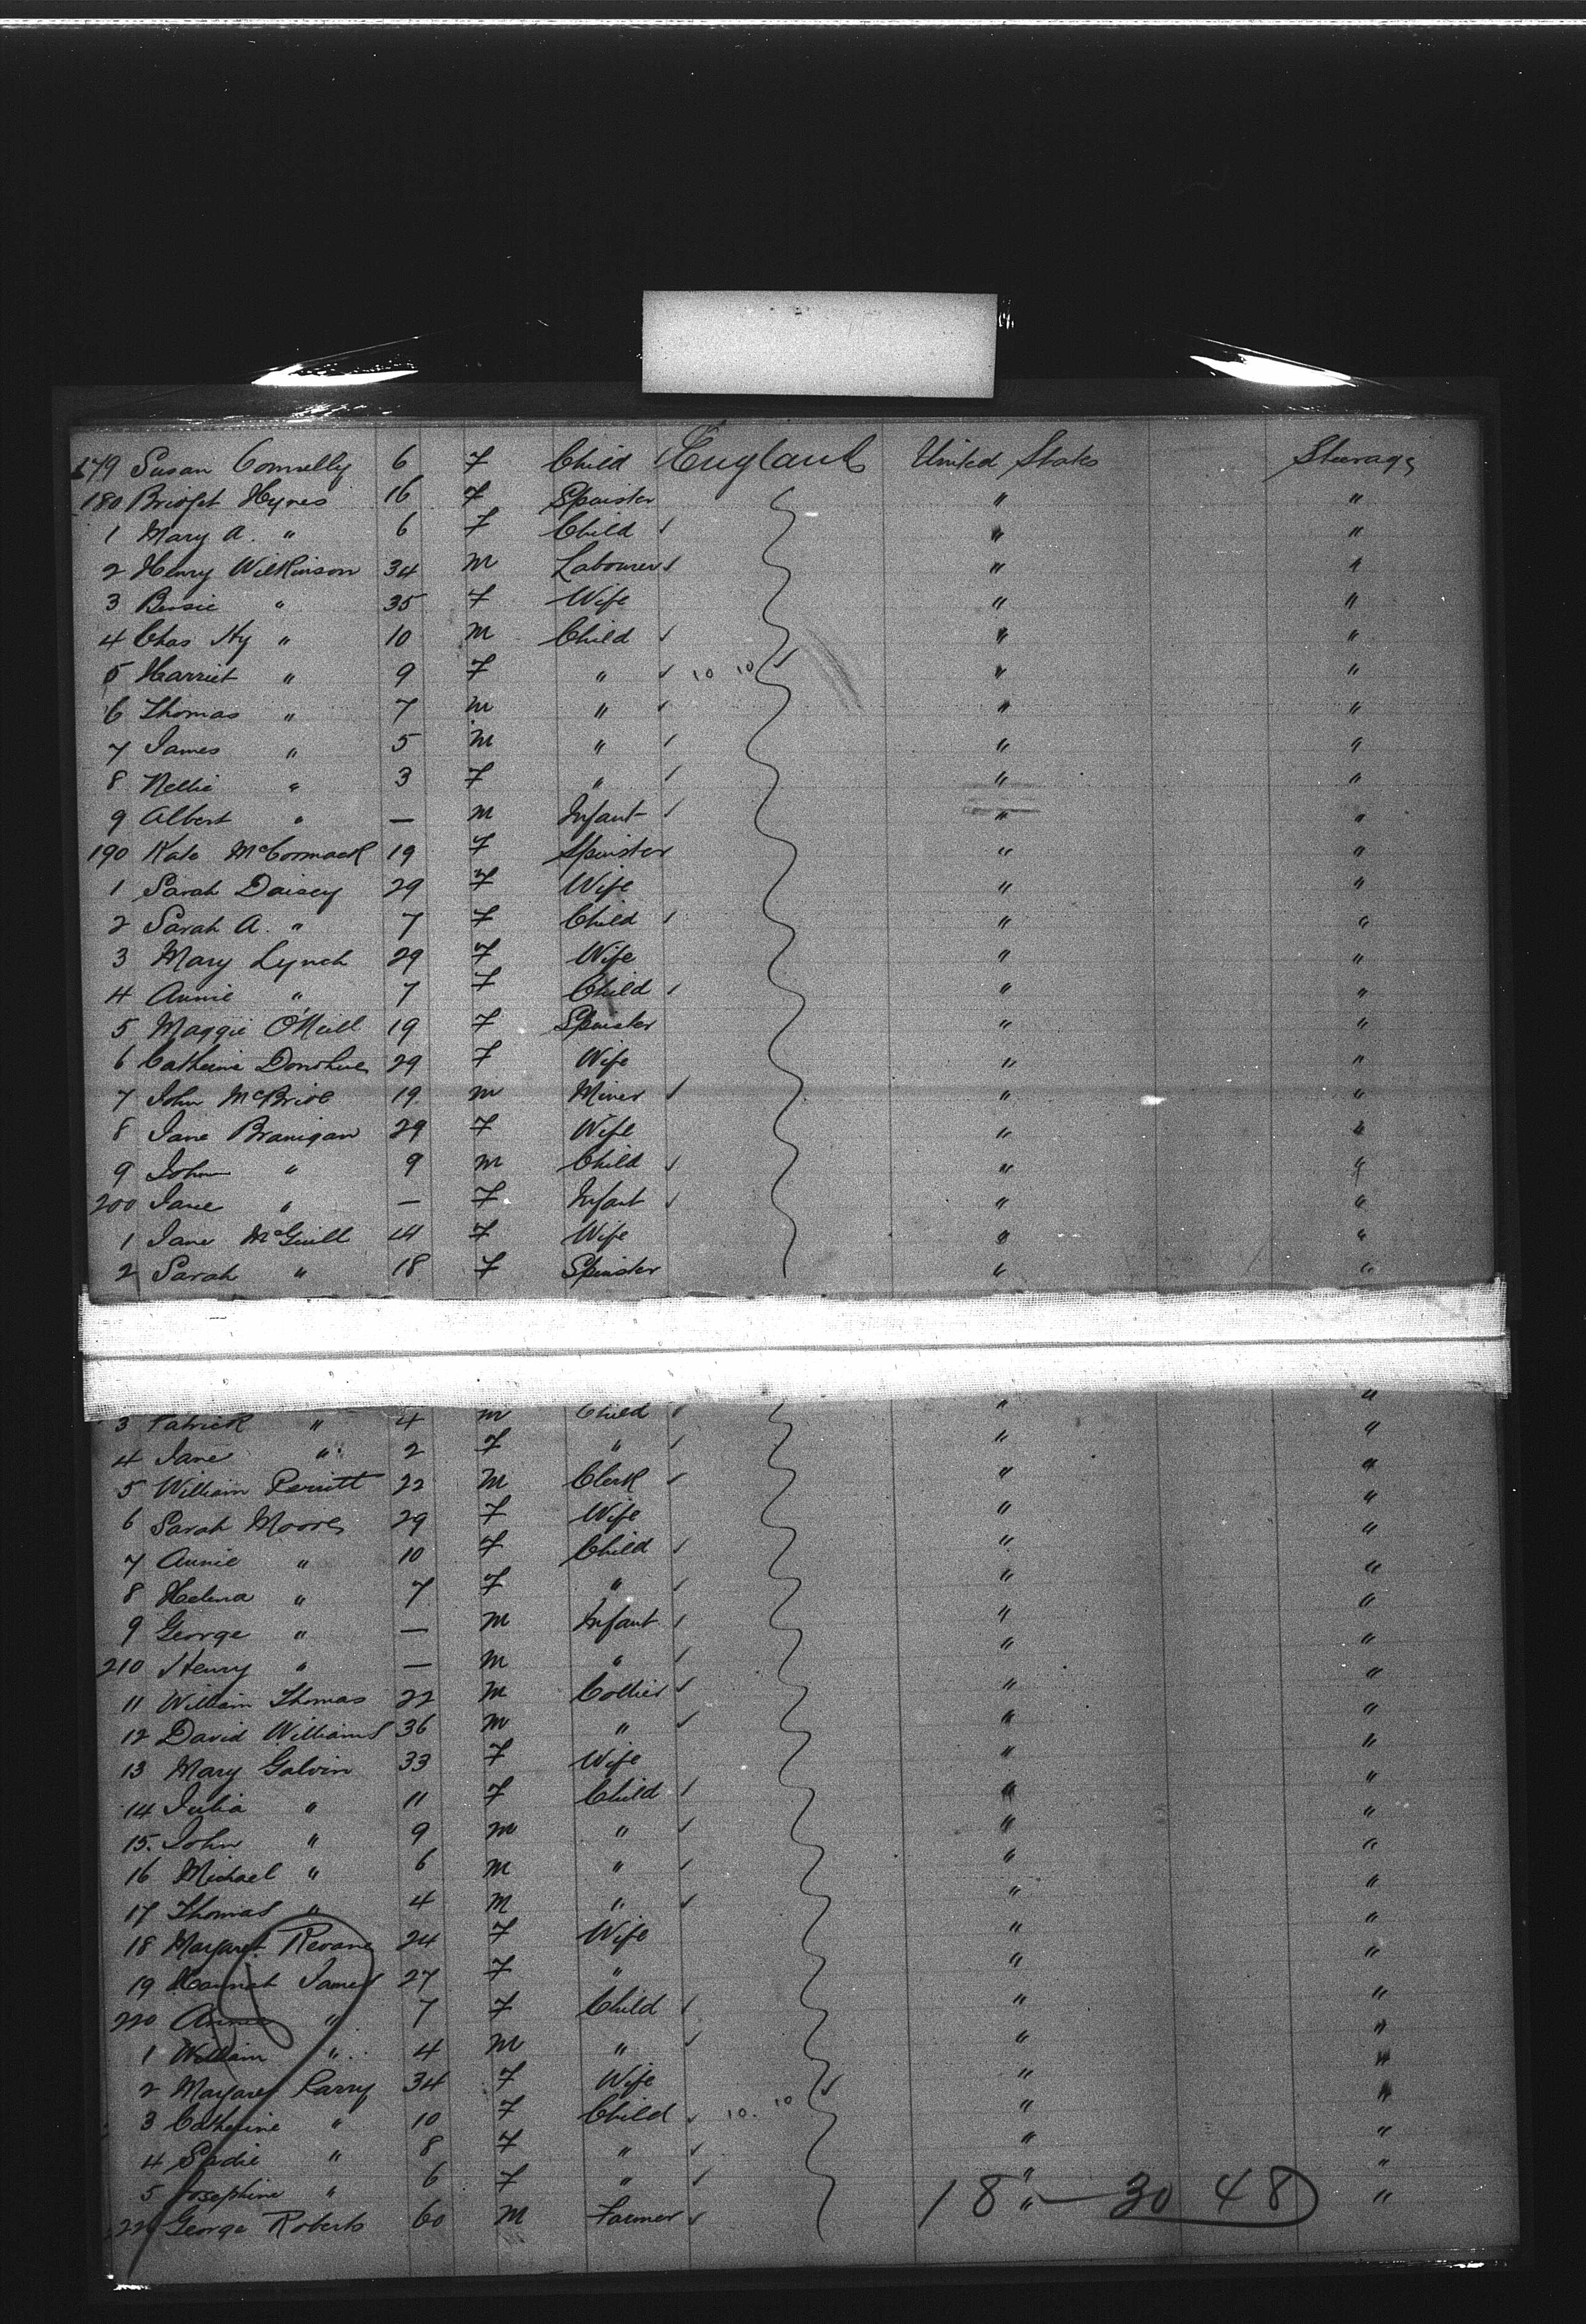 179 Susan Connelly 6 F Child England United States Steerage
180 Bridget Hynes 16 F Spinster " "
1 Mary A. " 6 F Child " "
2 Henry Wilkinson 34 M Labourer " "
3 Bessie " 35 F Wife " "
4 Chas Hy " 10 M Child " "
5 Harriet " 9 F " 10 10 " "
6 Thomas " 7 M " " "
7 James " 5 M " " "
8 Nellie " 3 F " " "
9 Albert " — M Infant " "
190 Kate McCormack 19 F Spinster " "
1 Sarah Daisey 29 F Wife " "
2 Sarah A. " 7 F Child " "
3 Mary Lynch 29 F Wife " "
4 Annie " 7 F Child " "
5 Maggie O'Neill 19 F Spinster " "
6 Catherine Donohue 29 F Wife " "
7 John McBride 19 M Miner " "
8 Jane Branigan 29 F Wife " "
9 John " 9 M Child " "
200 Jane " — F Infant " "
1 Jane 44 F Wife " "
2 Sarah " 18 F Spinster " "
3 Patrick " 4 M Child " "
4 Jane " 2 F " " "
5 William 22 M Clerk " "
6 Sarah Moore 29 F Wife " "
7 Annie " 10 F Child " "
8 Helena " 7 F " " "
9 George " — M Infant " "
210 Henry " — M " " "
11 William Thomas 22 M Collier " "
12 David Williams 36 M " " "
13 Mary Galvin 33 F Wife " "
14 Julia " 11 F Child " "
15. John " 9 M " " "
16 Michael " 6 M " " "
17 Thomas " 4 M " " "
18 Margaret 24 F Wife " "
19 Hannah James 27 F " " "
220 Annie " 7 F Child " "
1 William " 4 M " " "
2 Margaret Parry 34 F Wife " "
3 Catherine " 10 F Child 10. 10 " "
4 Sadie " 8 F " " "
5 Josephine " 6 F " " "
226 George Roberts 60 M Farmer " "
18 — 30 48